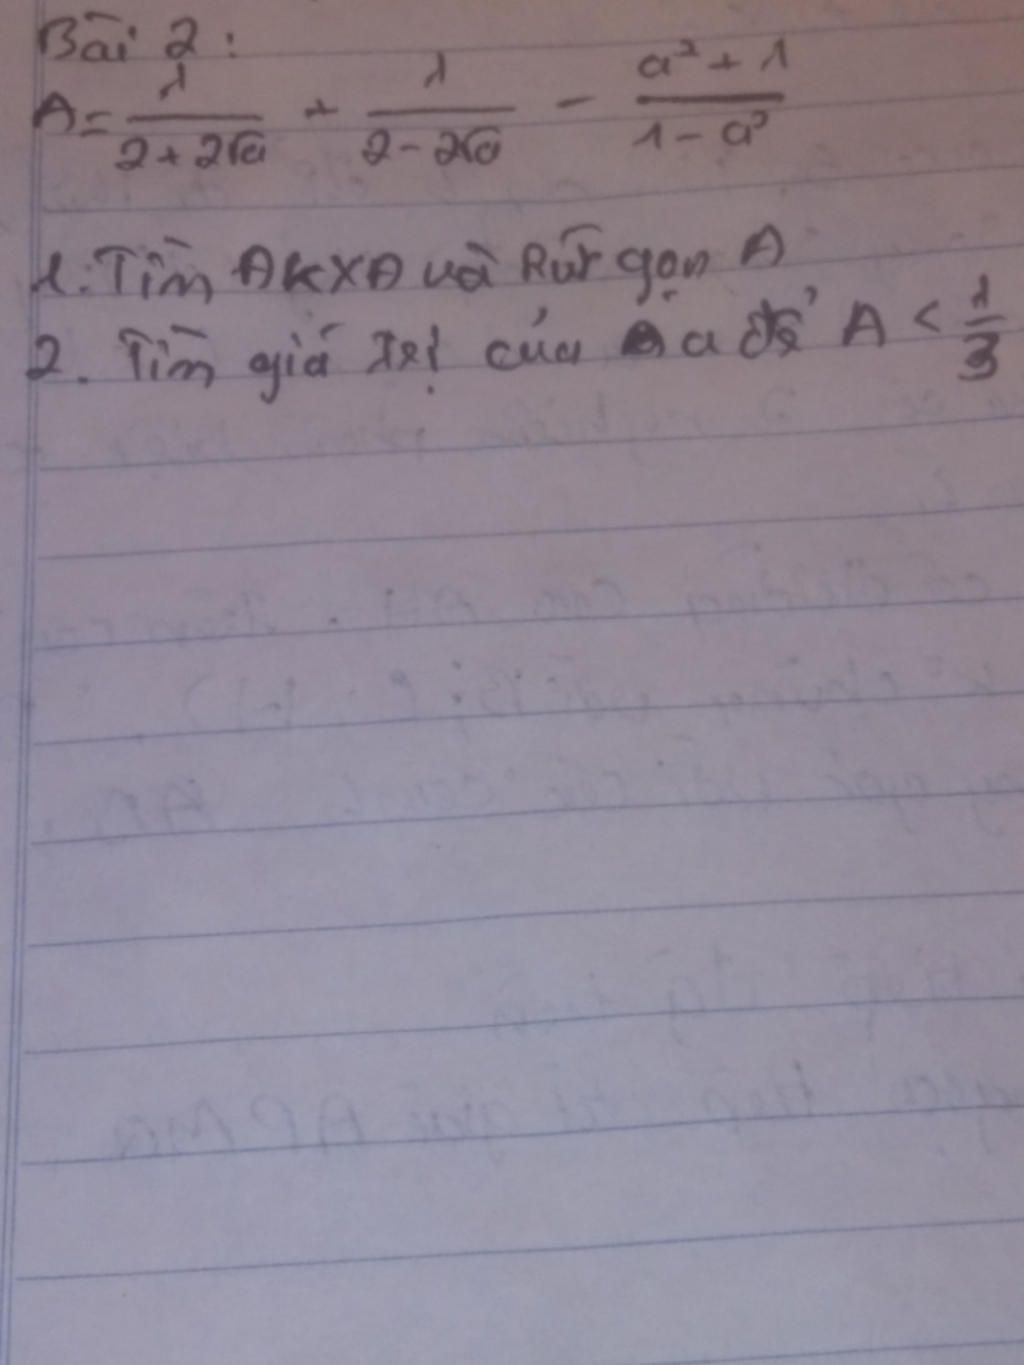 Bài 2:
A = 1/(2+2√a) + 1/(2-2√a) - (a²+1)/(1-a²)
1. Tìm ĐKXĐ và Rút gọn A
2. Tìm giá trị của a để A < 1/3